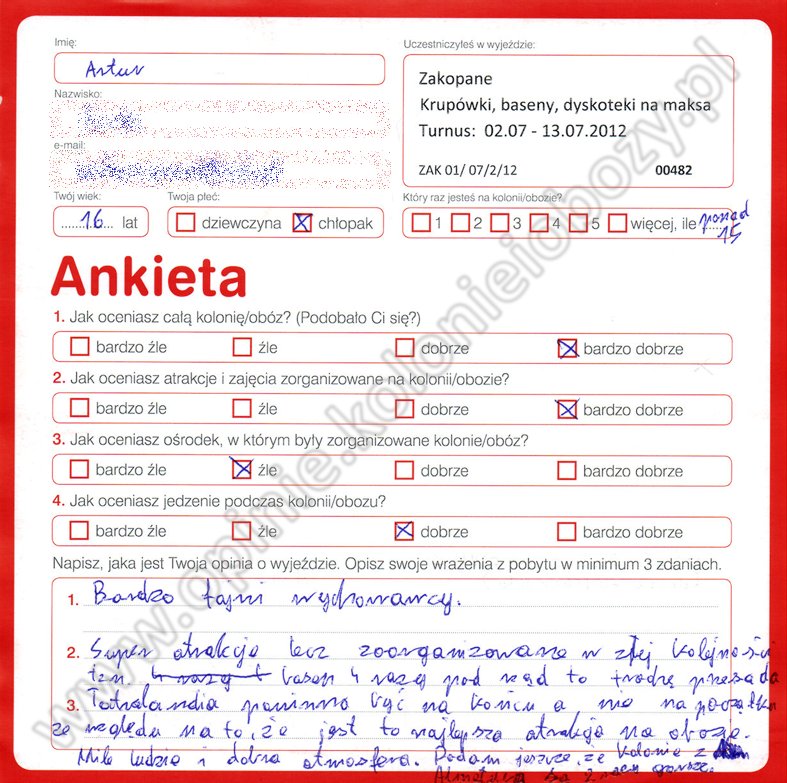 Imię:
Artur
Uczestniczyłeś w wyjeździe:
Zakopane
Krupówki, baseny, dyskoteki na maksa
Turnus: 02.07 - 13.07.2012
ZAK 01/ 07/2/12 00482
Nazwisko:
e-mail:
Twój wiek:
16 lat
Twoja płeć:
dziewczyna chłopak
Który raz jesteś na kolonii/obozie?
1 2 3 4 5 więcej, ile ponad
15
Ankieta
1. Jak oceniasz całą kolonię/obóz? (Podobało Ci się?)
bardzo źle źle dobrze bardzo dobrze
2. Jak oceniasz atrakcje i zajęcia zorganizowane na kolonii/obozie?
bardzo źle źle dobrze bardzo dobrze
3. Jak oceniasz ośrodek, w którym były zorganizowane kolonie/obóz?
bardzo źle źle dobrze bardzo dobrze
4. Jak oceniasz jedzenie podczas kolonii/obozu?
bardzo źle źle dobrze bardzo dobrze
Napisz, jaka jest Twoja opinia o wyjeździe. Opisz swoje wrażenia z pobytu w minimum 3 zdaniach.
1. Bardzo fajni wychowawcy.
2. Super atrakcje lecz zoorganizowane w złej kolejności
tzn. basen 4 razy pod rząd to trochę przesada
3. Tatralandia powinna być na końcu a nie na początku
ze względu na to, że jest to najlepsza atrakcja na obozie.
Mili ludzie i dobra atmosfera. Podam jeszcze, że kolonie z
Almaturu są 2 razy gorsze.
www.opinie.kolonieiobozy.pl